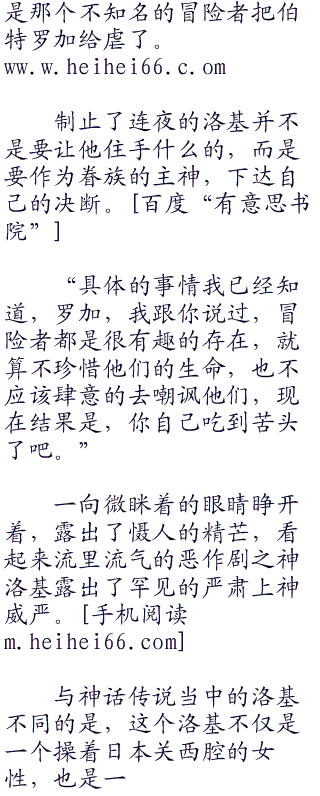 是那个不知名的冒险者把伯
特罗加给虐了。
ww.w.heihei66.c.om
制止了连夜的洛基并不
是要让他住手什么的，而是
要作为眷族的主神，下达自
己的决断。[百度“有意思书
院”]
“具体的事情我已经知
道，罗加，我跟你说过，冒
险者都是很有趣的存在，就
算不珍惜他们的生命，也不
应该肆意的去嘲讽他们，现
在结果是，你自己吃到苦头
了吧。”
一向微眯着的眼睛睁开
着，露出了慑人的精芒，看
起来流里流气的恶作剧之神
洛基露出了罕见的严肃上神
威严。[手机阅读
m.heihei66.com]
与神话传说当中的洛基
不同的是，这个洛基不仅是
一个操着日本关西腔的女
性，也是一